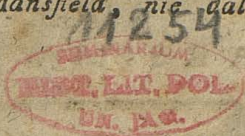 ansfield, nie
11254
SEMINARJUM
HIST. LIT. POL.
UN. JAG.